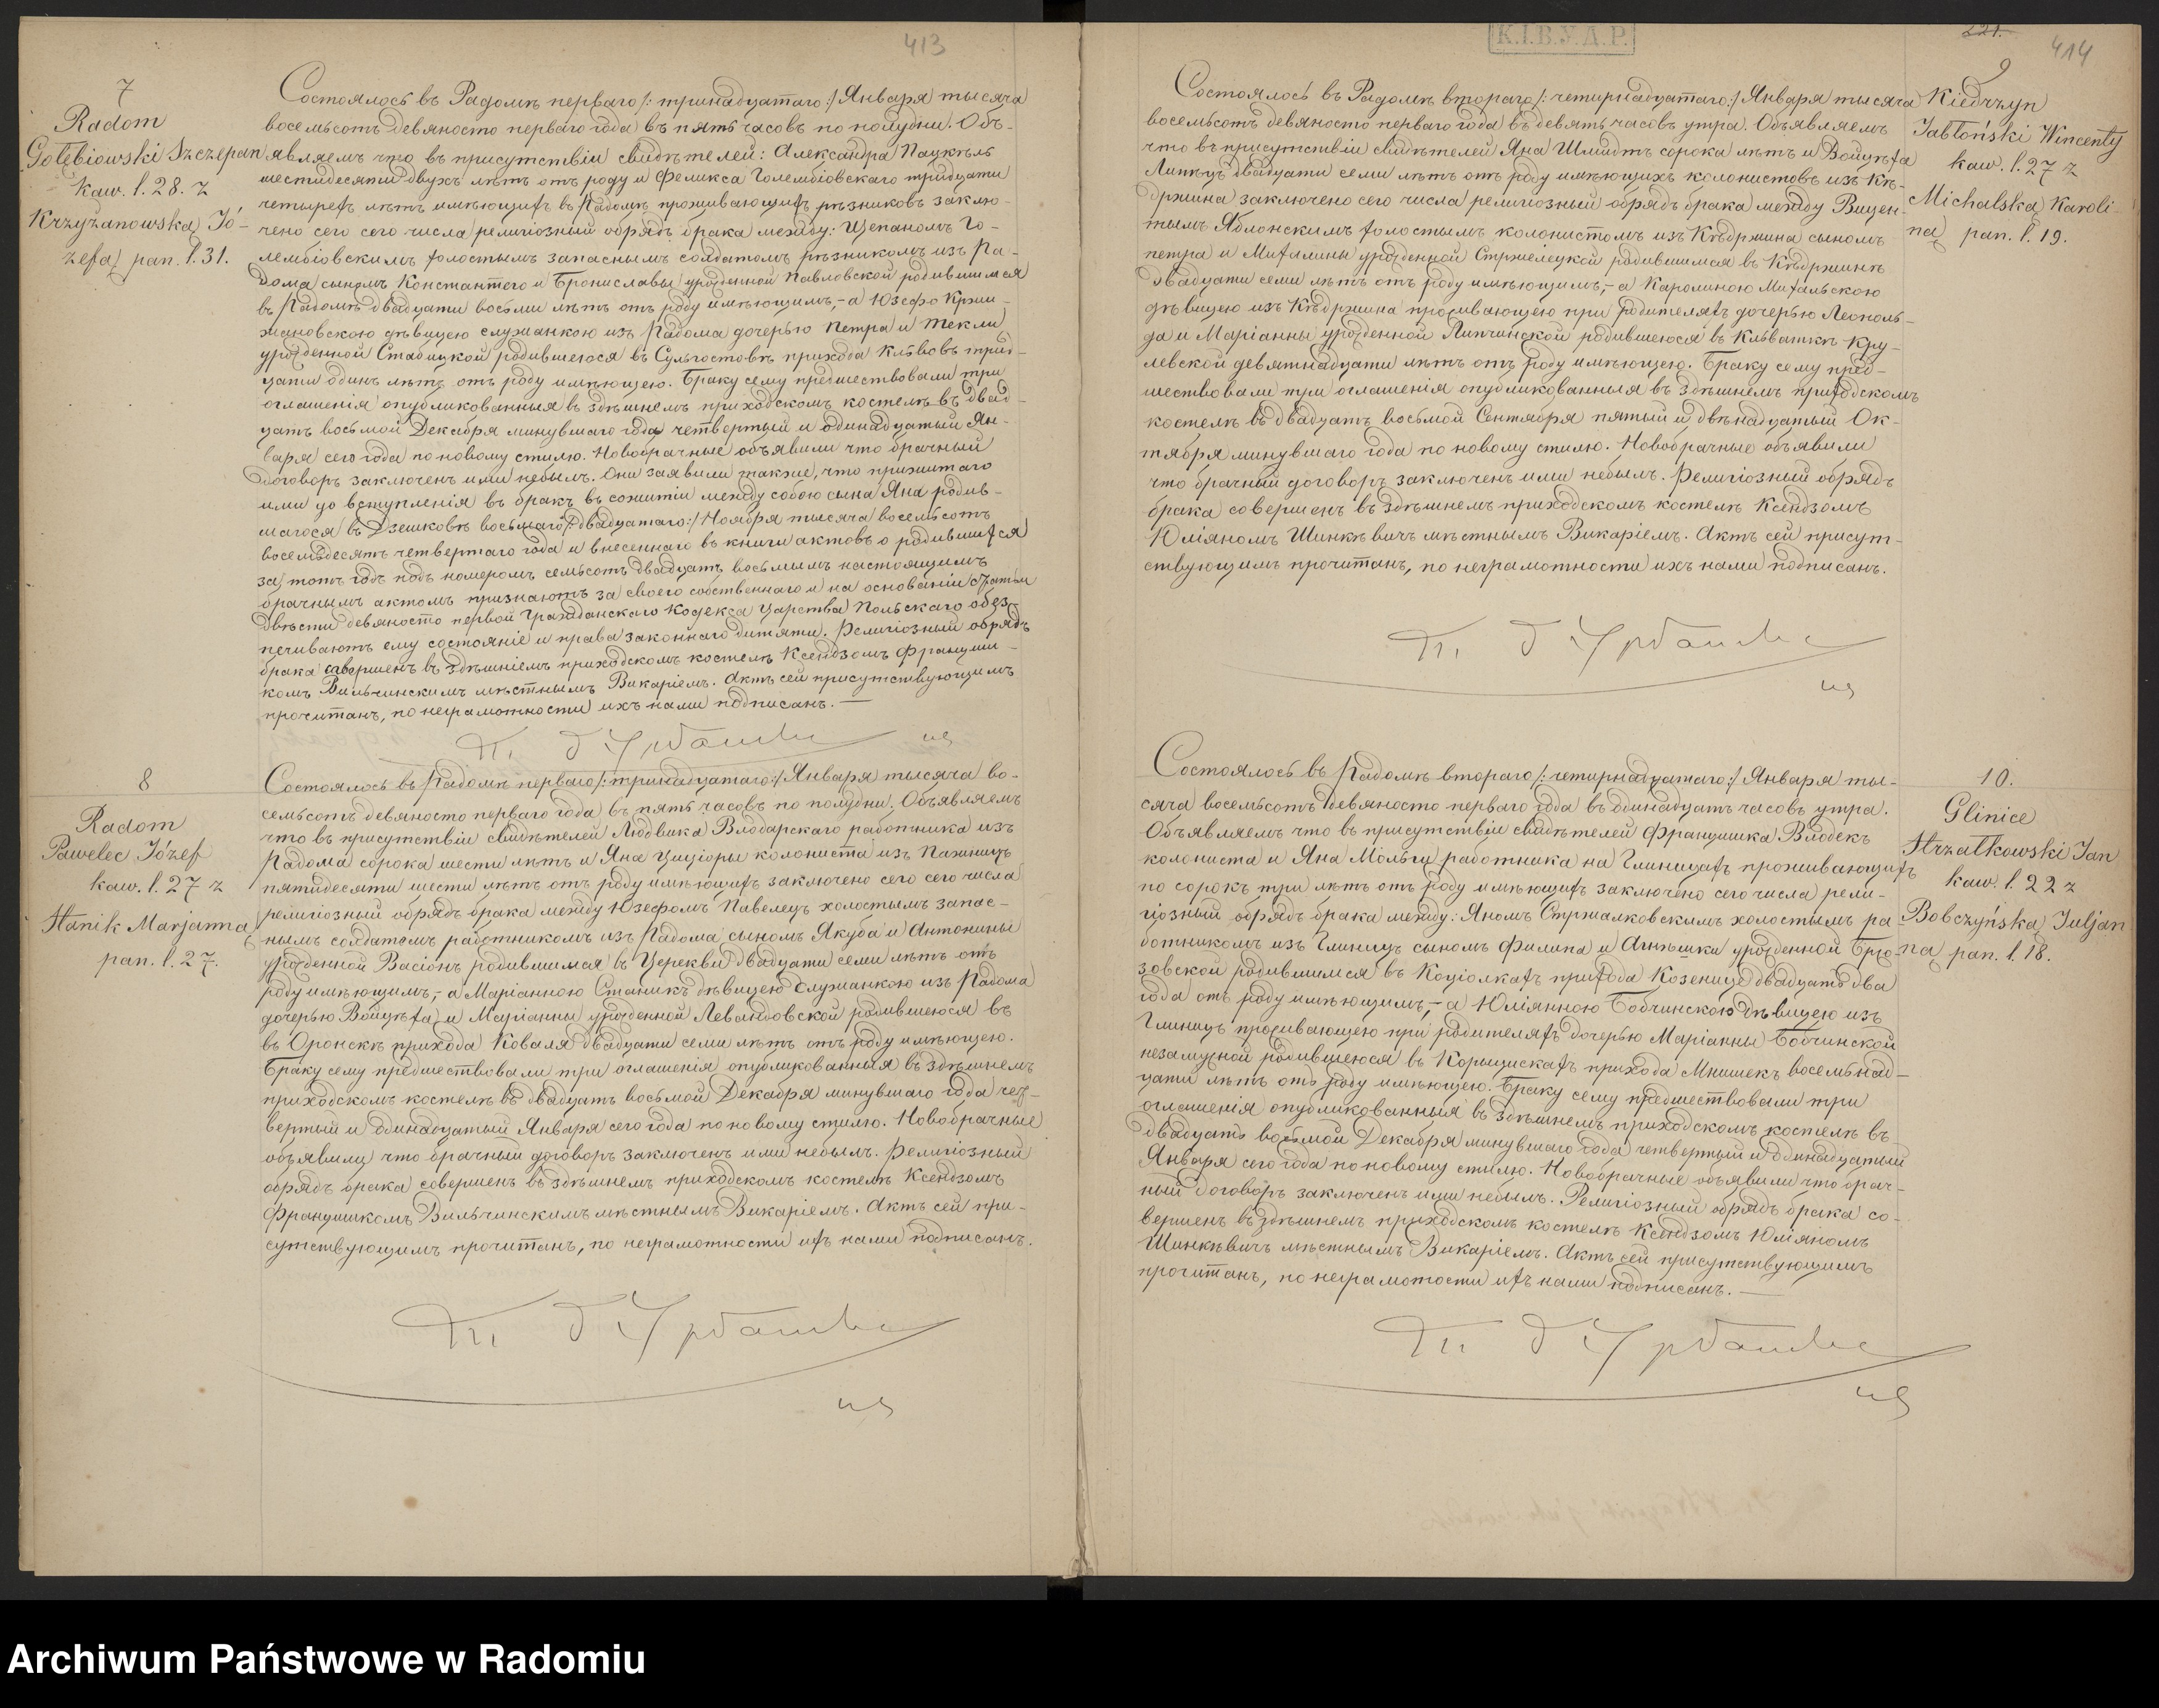 413
7
Radom
Gołębiowski Szczepan
kaw. l. 28. z
Krzyżanowska Jó-
zefa pan. l. 31.
Состоялось въ Радомѣ перваго /: тринадцатаго :/ Января тысяча
восемьсотъ девяносто перваго года въ пять часовъ по полудни. Объ-
являемъ что въ присутствіи свидѣтелей: Александра Пауксъль
шестидесяти двухъ лѣтъ отъ роду и Феликса Голембіовскаго тридцати
четырехъ лѣтъ имѣющихъ въ Радомѣ проживающихъ рѣзниковъ заклю-
чено сего сего числа религіозный обрядъ брака между: Щепаномъ Го-
лембіовскимъ холостымъ запаснымъ солдатомъ рѣзникомъ изъ Ра-
дома сыномъ Константего и Брониславы урожденной Павловской родившимся
въ Радомѣ двадцати восьми лѣтъ отъ роду имѣющимъ,- а Юзефо Кржи-
жановскою дѣвицею служанкою изъ Радома дочерью Петра и Текли
урожденной Стадницкой родившеюся въ Сульгостовѣ прихода Кльвовъ трид-
цати одинъ лѣтъ отъ роду имѣющею. Браку сему предшествовали три
оглашенія опубликованныя въ здѣшнемъ приходскомъ костелѣ въ двад-
цать восьмой Декабря минувшаго года четвертый и одинадцатый Ян-
варя сего года по новому стилю. Новобрачные объявили что брачный
договоръ заключенъ ими небылъ. Они заявили также, что прижитаго
ими до вступленія въ бракъ въ сожитіи между собою сына Яна родив-
шагося въ Дзешковѣ восьмаго /: двадцатаго :/ Ноября тысяча восемьсотъ
восемьдесятъ четвертаго года и внесеннаго въ книги актовъ о родившихся
за тотъ годъ подъ номеромъ семьсотъ двадцать восьмымъ настоящимъ
брачнымъ актомъ признаютъ за своего собственнаго и на основаніи статьи
двѣсти девяносто первой Гражданскаго Кодекса Царства Польскаго обез-
печиваютъ ему состояніе и права законнаго дитяти. Религіозный обрядъ
брака совершенъ въ здѣшніемъ приходскомъ костелѣ Ксендзомъ Францши-
комъ Вильчинскимъ мѣстнымъ Викаріемъ. Актъ сей присутствующимъ
прочитанъ, по неграмотности ихъ нами подписанъ. —
8
Radom
Pawelec Józef
kaw. l. 27 z
Stanik Marjanna
pan. l. 27.
Состоялось въ Радомѣ перваго /: тринадцатаго :/ Января тысяча во-
семьсотъ девяносто перваго года въ пять часовъ по полудни. Объявляемъ
что въ присутствіи свидѣтелей Людвика Влодарскаго работника изъ
Радома сорока шести лѣтъ и Яна Цициоры колониста изъ Пажницъ
пятидесяти шести лѣтъ отъ роду имѣющихъ заключено сего сего числа
религіозный обрядъ брака между Юзефомъ Павелецъ холостымъ запас-
нымъ солдатомъ работникомъ изъ Радома сыномъ Якуба и Антонины
урожденной Васіонъ родившимся въ Церекви двадцати семи лѣтъ отъ
роду имѣющимъ,- а Маріанною Станикъ дѣвицею служанкою изъ Радома
дочерью Войцѣха и Маріанны урожденной Левандовской родившеюся въ
въ Оронскѣ прихода Коваля двадцати семи лѣтъ отъ роду имѣющею.
Браку сему предшествовали три оглашенія опубликованныя въ здѣшнемъ
приходскомъ костелѣ въ двадцать восьмой Декабря минувшаго года чет-
вертый и одинадцатый Января сего года по новому стилю. Новобрачные
объявили что брачный договоръ заключенъ ими небылъ. Религіозный
обрядъ брака совершенъ въ здѣшнемъ приходскомъ костелѣ Ксендзомъ
Францишкомъ Вильчинскимъ мѣстнымъ Викаріемъ. Актъ сей при-
сутствующимъ прочитанъ, по неграмотности ихъ нами подписанъ.
К.І.В.У.А.Р.
221.
414
9
Kiedrzyn
Jabłoński Wincenty
kaw. l. 27 z
Michalska Karoli-
na pan. l. 19.
Состоялось въ Радомѣ втораго /: четырнадцатаго :/ Января тысяча
восемьсотъ девяносто перваго года въ девять часовъ утра. Объявляемъ
что въ присутствіи свидѣтелей Яна Шмидтъ сорока лѣтъ и Войцѣха
Липѣцъ двадцати семи лѣтъ отъ роду имѣющихъ колонистовъ изъ Кѣ-
држина заключено сего числа религіозный обрядъ брака между Вицен-
тымъ Яблонскимъ холостымъ колонистомъ изъ Кѣдржина сыномъ
петра и Михалины урожденной Стржелецкой родившимся въ Кѣдржинѣ
двадцати семи лѣтъ отъ роду имѣющимъ,- а Каролиною Михальскою
дѣвицею изъ Кѣдржина проживающею при родителяхъ дочерью Леополь-
да и Маріанны урожденной Липчинской родившеюся въ Кльваткѣ Кру-
левской девятнадцати лѣтъ отъ роду имѣющею. Браку сему пред-
шествовали три оглашенія опубликованныя въ здѣшнемъ приходскомъ
костелѣ въ двадцать восьмой Сентября пятый и двѣнадцатый Ок-
тября минувшаго года по новому стилю. Новобрачные объявили
что брачный договоръ заключенъ ими небылъ. Религіозный обрядъ
брака совершенъ въ здѣшнемъ приходскомъ костелѣ Ксендзомъ
Юліяномъ Шинкѣвичъ мѣстнымъ Викаріемъ. Актъ сей присут-
ствующимъ прочитанъ, по неграмотности ихъ нами подписанъ.
10.
Glinice
Strzałkowski Jan
kaw. l. 22 z
Bobczyńska Juljan-
na pan. l. 18.
Состоялось въ Радомѣ втораго /: четырнадцатаго :/ Января ты-
сяча восемьсотъ девяносто перваго года въ одинадцать часовъ утра.
Объявляемъ что въ присутствіи свидѣтелей Францишка Влодекъ
колониста и Яна Мольги работника на Глиницахъ проживающихъ
по сорокъ три лѣтъ отъ роду имѣющихъ заключено сего числа рели-
гіозный обрядъ брака между: Яномъ Стржалковскимъ холостымъ ра-
ботникомъ изъ Глиницъ сыномъ Филипа и Агнѣшки урожденной Брзо-
зовской родившимся въ Коціолкахъ прихода Козенице двадцать два
года отъ роду имѣющимъ,- а Юліянною Бобчинскою дѣвицею изъ
Глиницъ проживающею при родителяхъ дочерью Маріанны Бобчинской
незамужной родившеюся въ Корыцискахъ прихода Мнишекъ восемьнад-
цати лѣтъ отъ роду имѣющею. Браку сему предшествовали три
оглашенія опубликованныя въ здѣшнемъ приходскомъ костелѣ въ
двадцать восьмой Декабря минувшаго года четвертый и одинадцатый
Января сего года по новому стилю. Новобрачные объявили что брач-
ный договоръ заключенъ ими небылъ. Религіозный обрядъ брака со-
вершенъ въ здѣшнемъ приходскомъ костелѣ Ксендзомъ Юліяномъ
Шинкѣвичъ мѣстнымъ Викаріемъ. Актъ сей присутствующимъ
прочитанъ, по неграмотости ихъ нами подписанъ. —
Archiwum Państwowe w Radomiu